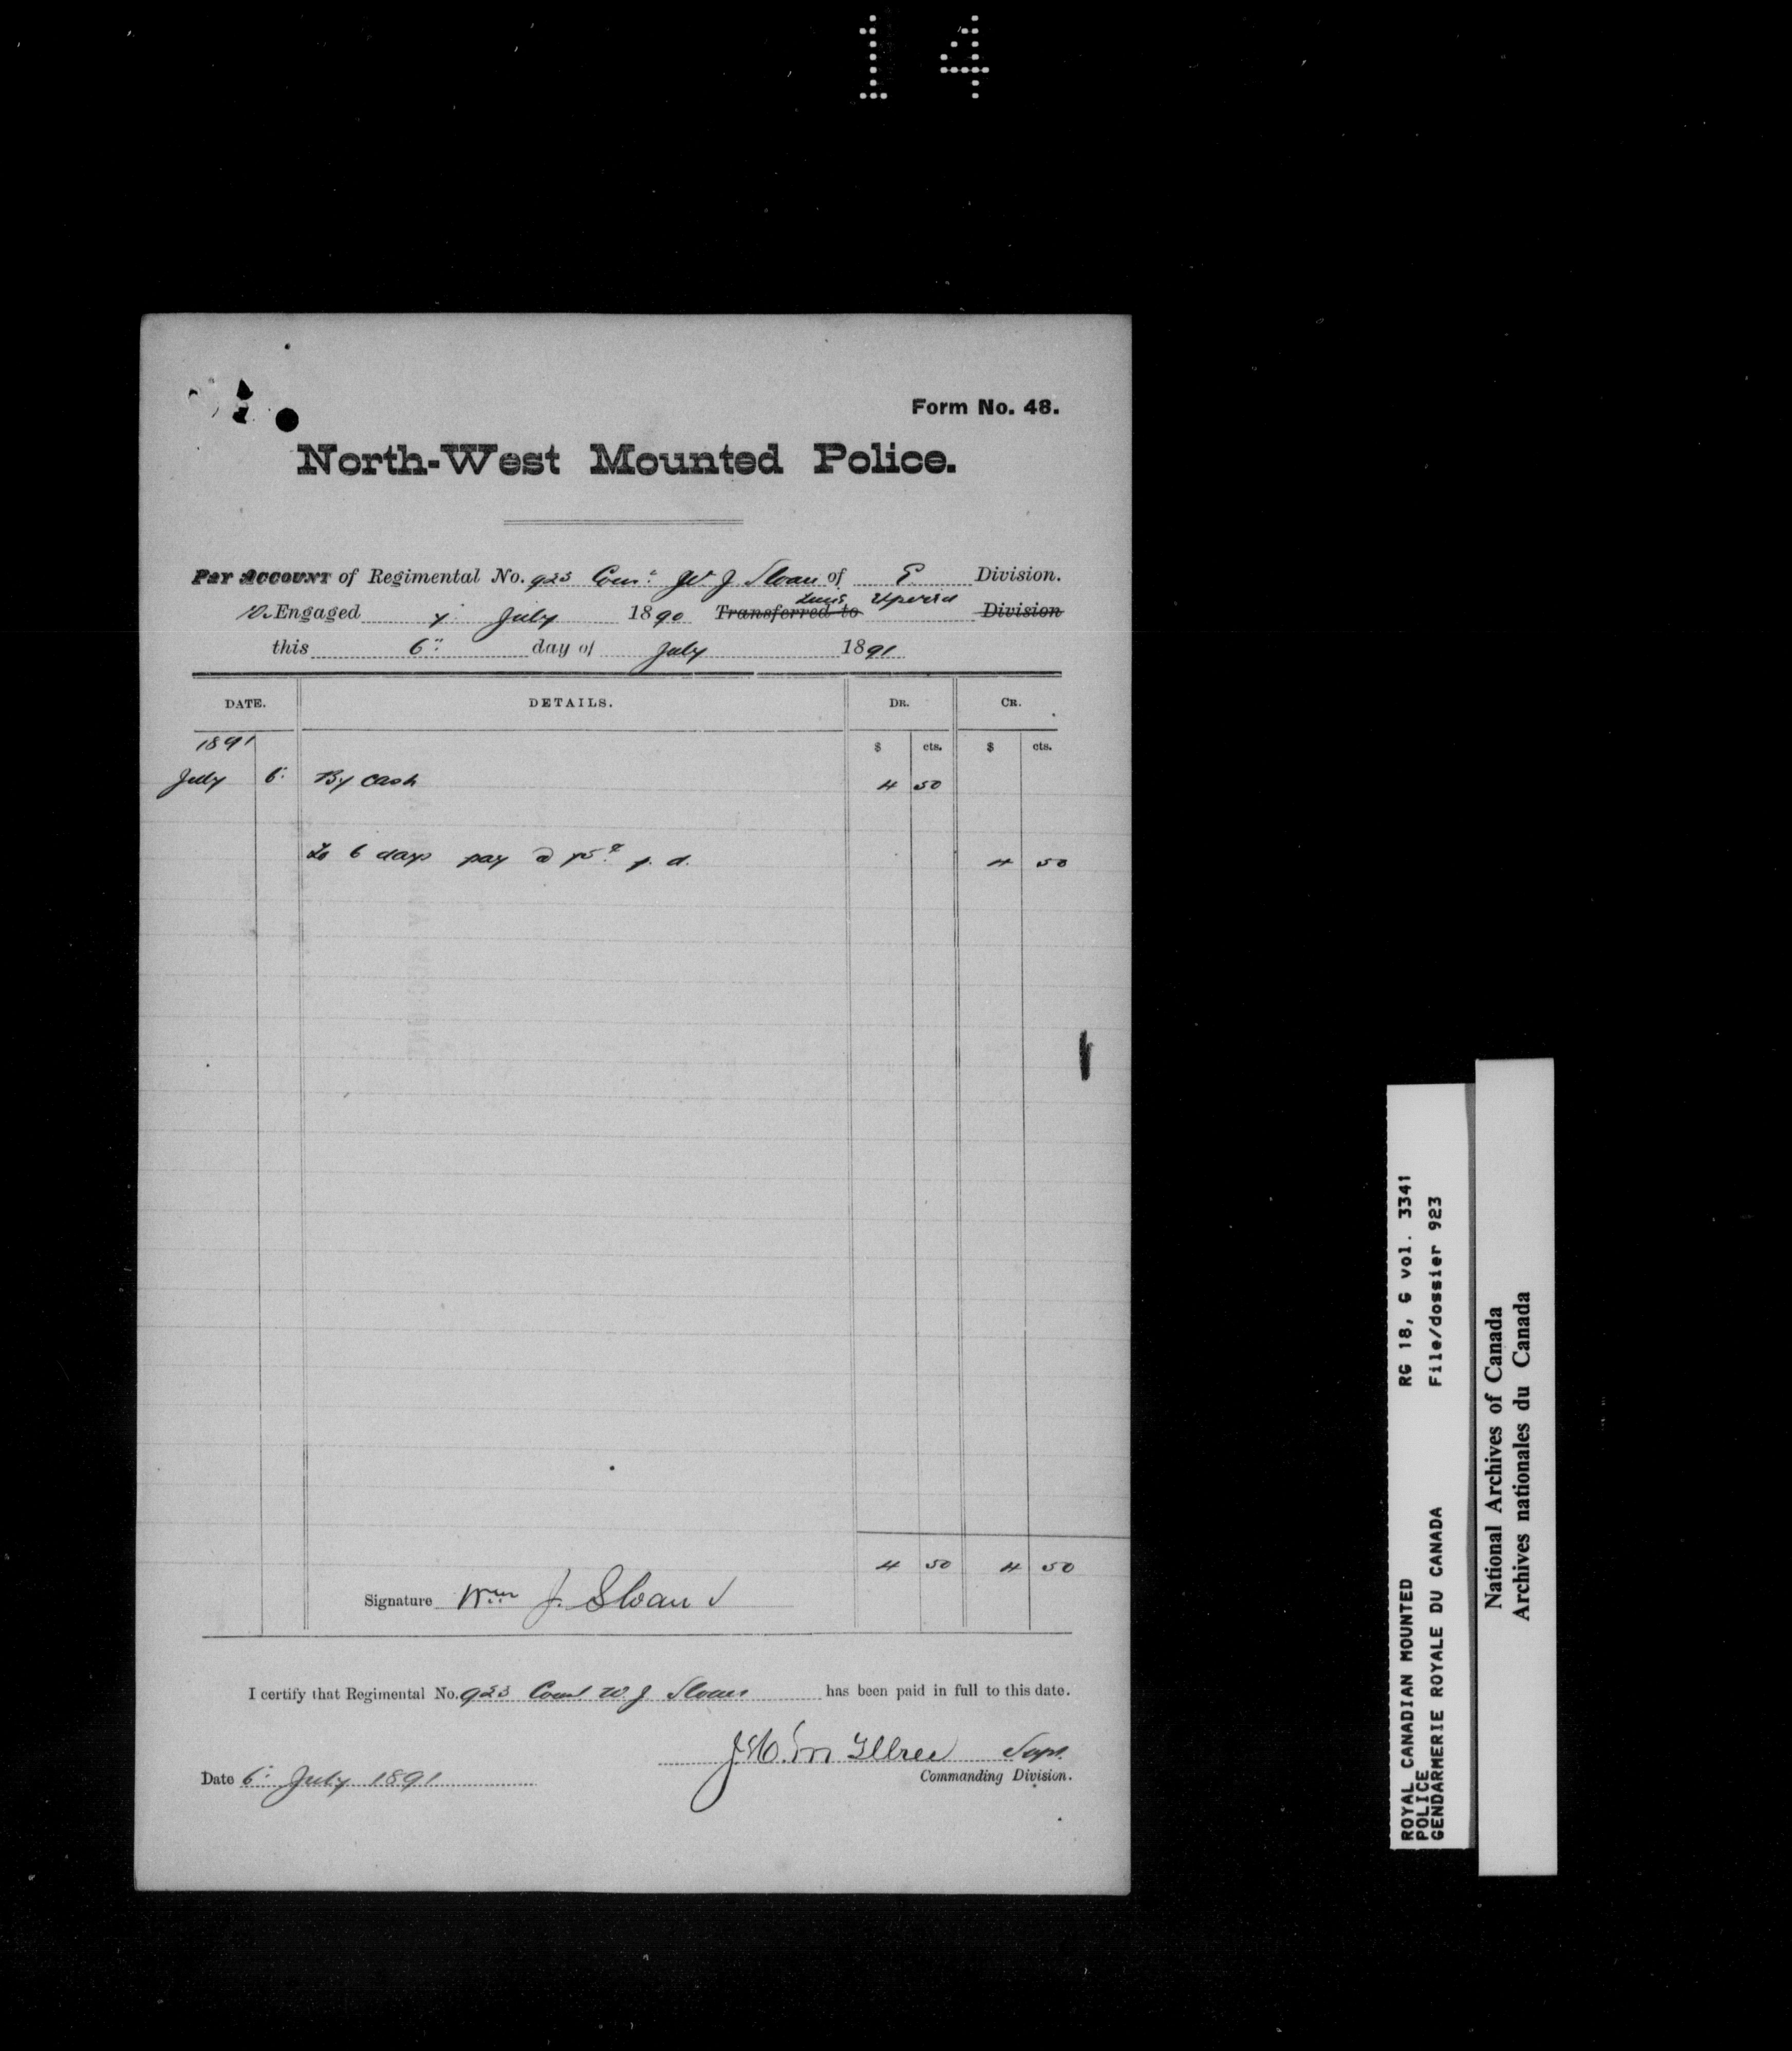 14
Form No. 48.
North-West Mounted Police.
Pay Account of Regimental No. 923 Conˢᵗ W J Sloan of E Division.
Re Engaged 7 July 1890 ~~Transferred to~~ Time Expired ~~Division~~
this 6" day of July 1891
DATE. DETAILS. DR. CR.
1891 $ cts. $ cts.
July 6. By Cash 4 50
To 6 days pay @ 75¢ p. d. 4 50
4 50 4 50
Signature Wm J. Sloan
I certify that Regimental No. 923 Const W. J Sloan has been paid in full to this date.
Supt.
Date 6. July 1891 Commanding Division.
ROYAL CANADIAN MOUNTED RG 18, G vol. 3341
POLICE
GENDARMERIE ROYALE DU CANADA File/dossier 923
National Archives of Canada
Archives nationales du Canada